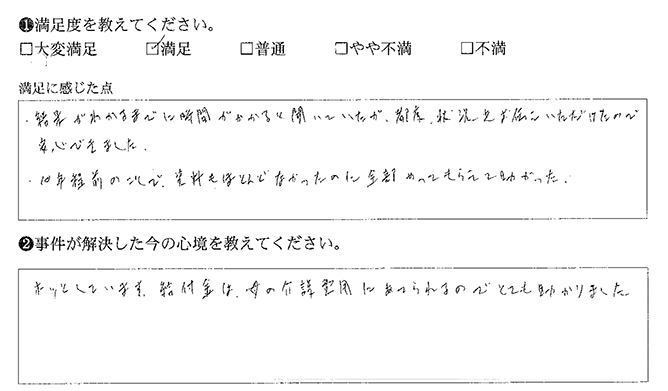 ❶満足度を教えてください。
□大変満足 ☑満足 □普通 □やや不満 □不満
満足に感じた点
・結果がわかるまでに時間がかかると聞いていたが、都度、状況をお伝えいただけたので
安心できました。
・10年程前のことで、資料もほとんどなかったのに全部やってもらえて助かった。
❷事件が解決した今の心境を教えてください。
ホッとしています。給付金は、母の介護費用にあてられるのでとても助かりました。